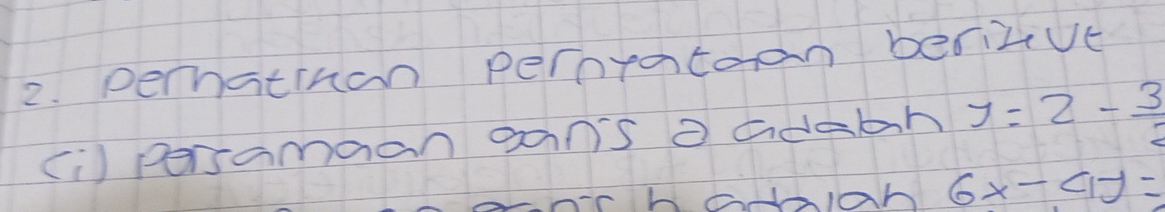 2. Perhatikan pernyataan berikut
(i) Persamaan garis a adalah y = 2 - 3
h adalah 6x - 4y =